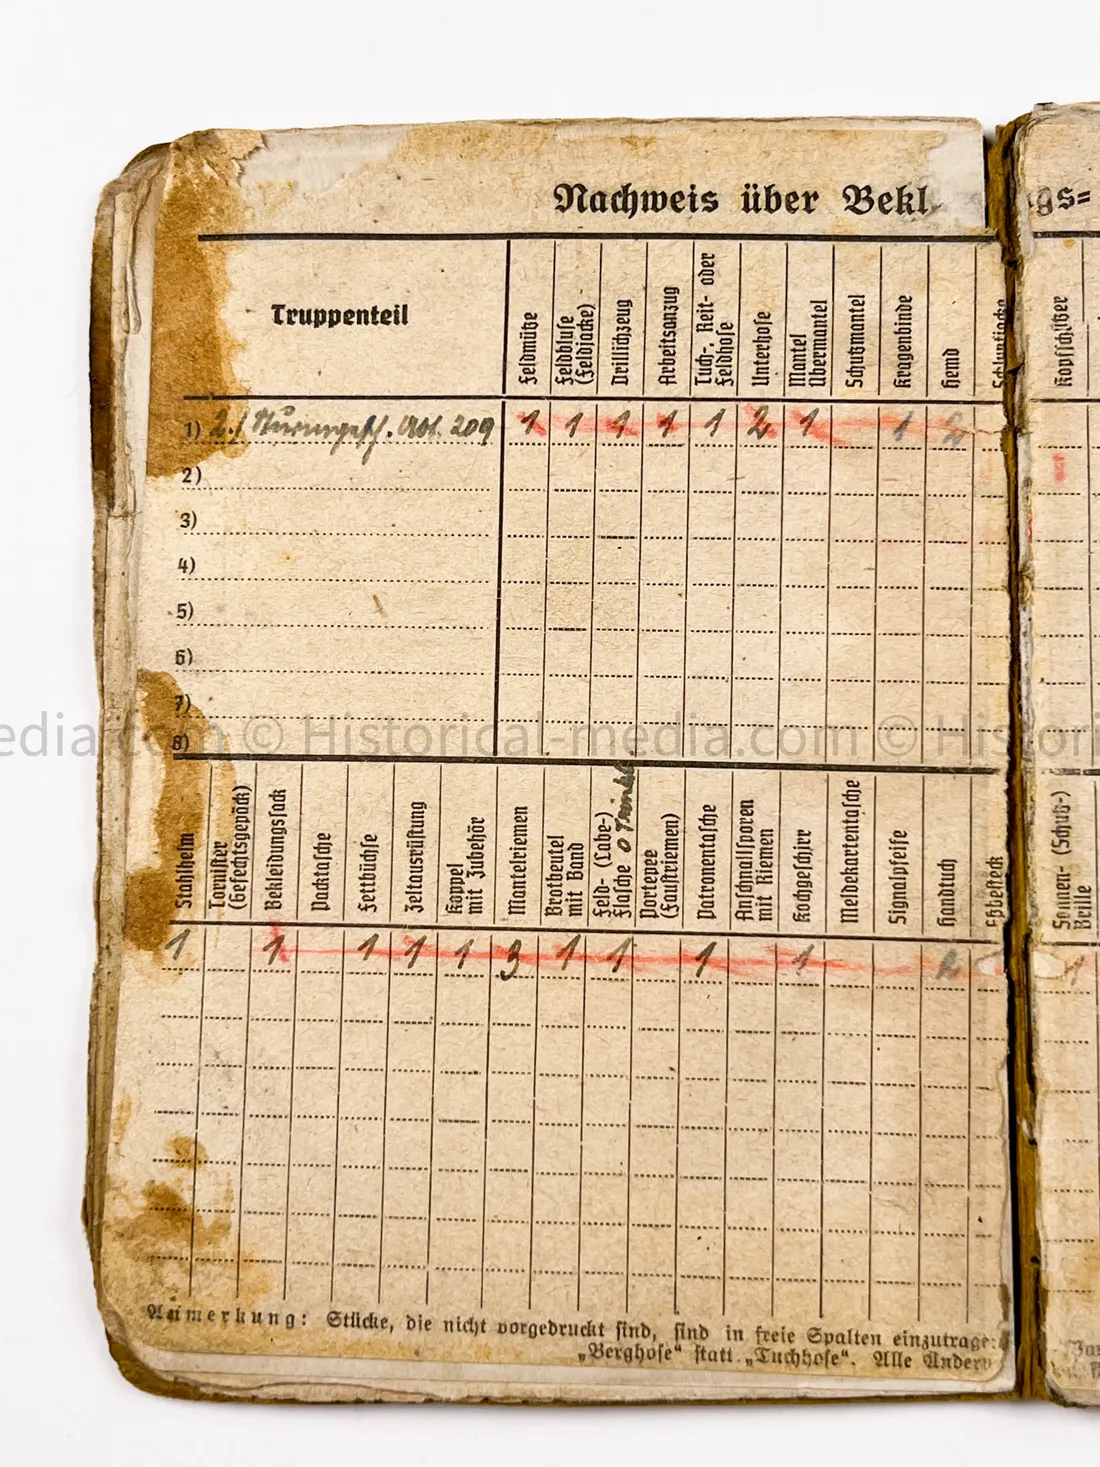 Nachweis über Bekl
gs=
Truppenteil
Feldmütze
Feldbluse (Feldjacke)
Drillichzeug
Arbeitsanzug
Tuch-, Reit- oder Feldhose
Unterhose
Mantel Übermantel
Schutzmantel
Kragenbinde
Hemd
Schlupfjacke
Kopfschützer
1) 2./ Sturmgesch. Abt. 209 1 1 1 1 1 2 1 1 2
2)
3)
4)
5)
6)
7)
8)
edia.com © Historical-media.com © Histori
Stahlhelm
Tornister (Gefechtsgepäck)
Bekleidungssack
Packtasche
Fettbüchse
Zeltausrüstung
Koppel mit Zubehör
Mantelriemen
Brotbeutel mit Band
Feld- (Labe-) Flasche
Portepee (Faustriemen)
Patronentasche
Anschnallsporen mit Riemen
Kochgeschirr
Meldekartentasche
Signalpfeife
Handtuch
Eßbesteck
Sonnen- (Schutz-) Brille
1 1 1 1 1 3 1 1 1 1
Anmerkung: Stücke, die nicht vorgedruckt sind, sind in freie Spalten einzutrage
„Berghose“ statt „Tuchhose“. Alle Änder